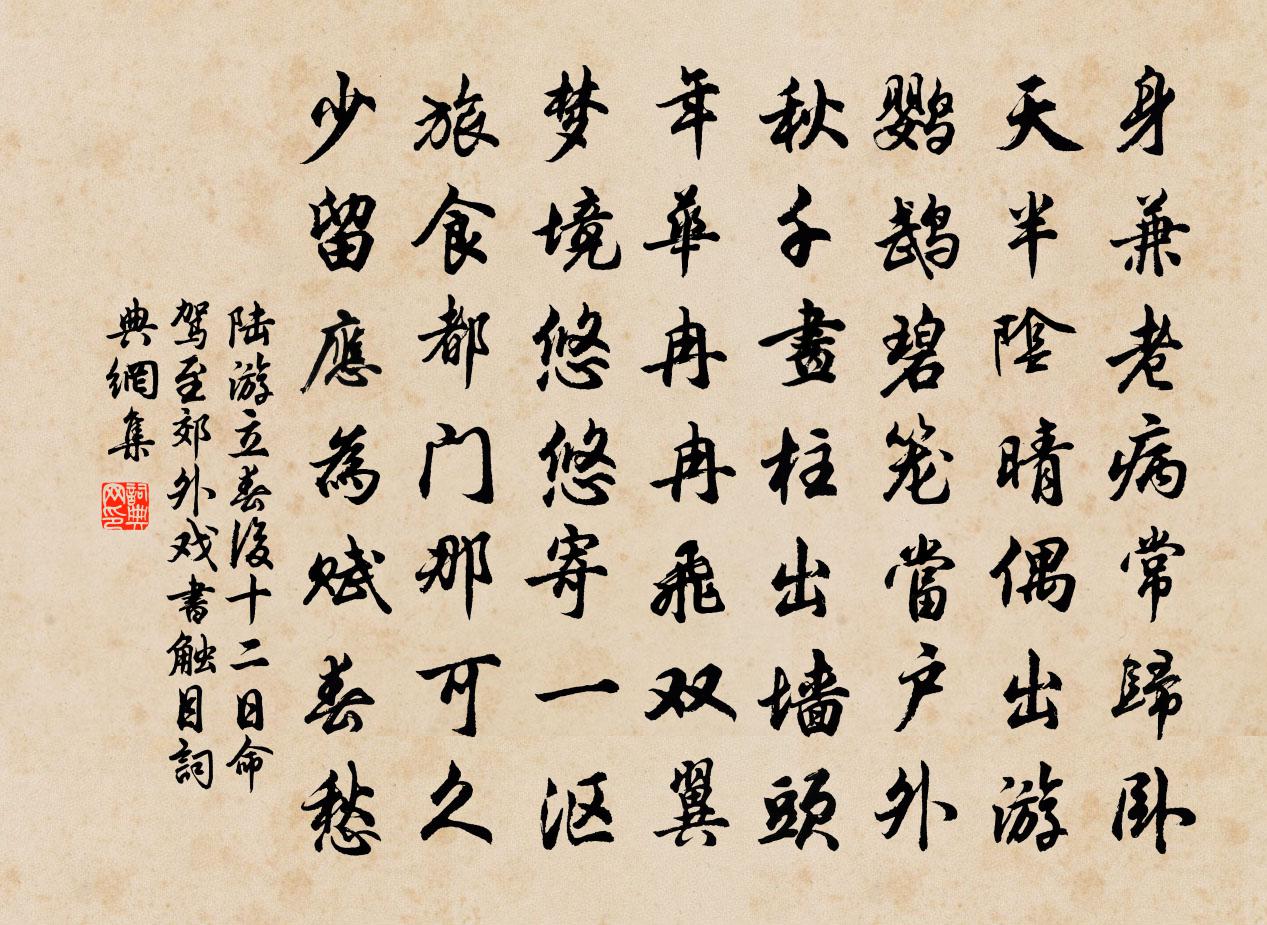 身兼老病常歸卧
天半陰晴偶出游
鹦鹉碧笼當户外
秋千畫柱出墙頭
年華冉冉飛双翼
梦境悠悠寄一沤
旅食都门那可久
少留應為赋春愁
陆游立春後十二日命
驾至郊外戏書触目詞
典網集
詞典
网印